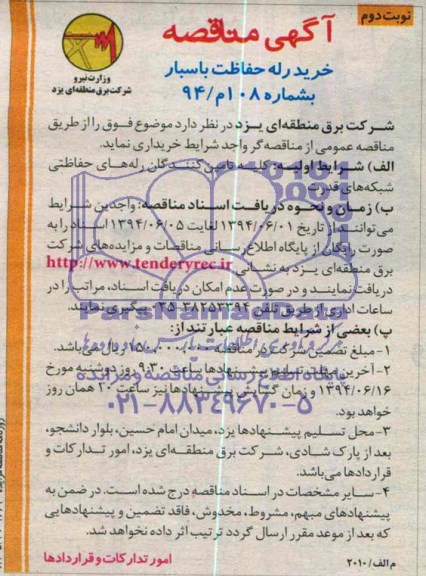 نوبت دوم
آگهی مناقصه
خرید رله حفاظت باسبار
بشماره ۱۰۸م/۹۴
وزارت نیرو
شرکت برق منطقه‌ای یزد
شرکت برق منطقه‌ای یزد در نظر دارد موضوع فوق را از طریق
مناقصه عمومی از مناقصه‌گر واجد شرایط خریداری نماید.
الف) شرایط اولیه: کلیه تامین کنندگان رله‌های حفاظتی
شبکه‌های قدرت
ب) زمان و نحوه دریافت اسناد مناقصه: واجدین شرایط
می‌توانند از تاریخ ۱۳۹۴/۰۶/۰۱ لغایت ۱۳۹۴/۰۶/۰۵ اسناد را به
صورت رایگان از پایگاه اطلاع رسانی مناقصات و مزایده‌های شرکت
برق منطقه‌ای یزد به نشانی http://www.tenderyrec.ir
دریافت نمایند و در صورت عدم امکان دریافت اسناد، مراتب را در
ساعات اداری از طریق تلفن ۳۸۲۵۳۳۹۴-۰۳۵ پیگیری نمایند.
پ) بعضی از شرایط مناقصه عبارتند از:
۱- مبلغ تضمین شرکت در مناقصه ریال می‌باشد.
۲- آخرین مهلت تسلیم پیشنهادها ساعت ۹:۳۰ روز دوشنبه مورخ
۱۳۹۴/۰۶/۱۶ و زمان گشایش پیشنهادها نیز ساعت ۱۰ همان روز
خواهد بود.
۳- محل تسلیم پیشنهادها یزد، میدان امام حسین، بلوار دانشجو،
بعد از پارک شادی، شرکت برق منطقه‌ای یزد، امور تدارکات و
قراردادها می‌باشد.
۴- سایر مشخصات در اسناد مناقصه درج شده است. در ضمن به
پیشنهادهای مبهم، مشروط، مخدوش، فاقد تضمین و پیشنهادهایی
که بعد از موعد مقرر ارسال گردد ترتیب اثر داده نخواهد شد.
م الف/۲۰۱۰
امور تدارکات و قراردادها
ParsNamadData
پایگاه اطلاع رسانی مناقصه مزایده
۰۲۱-۸۸۳۴۹۶۷۰-۵